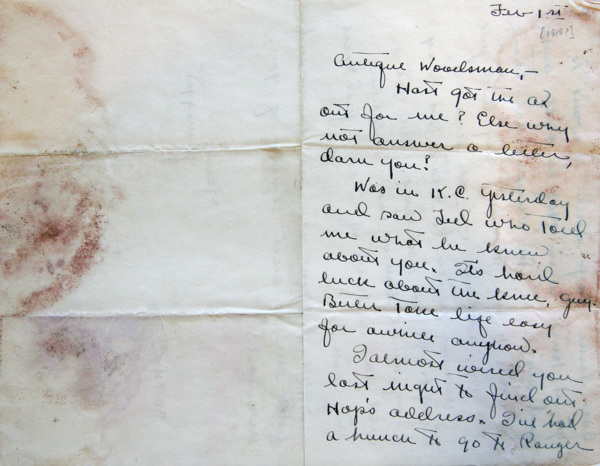 Feb 1st
Antique Woodsman,-
Hast got the ax
out for me? Else why
not answer a letter,
darn you?
Was in K.C. yesterday
and saw Ted who told
me what he knew
about you. Its hard
luck about the knee, guy.
Better take life easy
for awhile anyhow.
I almost wired you
last night to find out
Hop's address. I've had
a hunch to go to Ranger